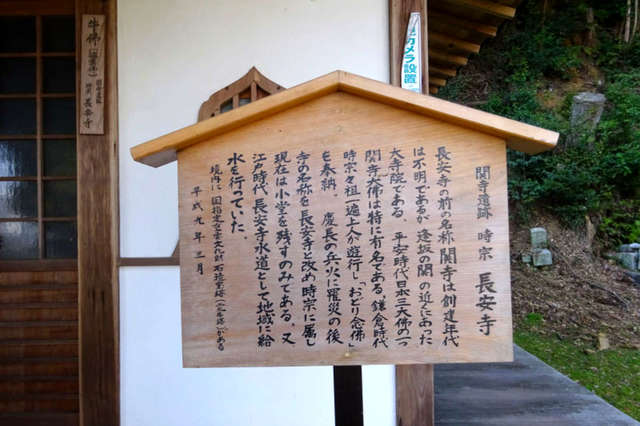 関寺遺跡 時宗 長安寺
長安寺の前の名称 関寺は創建年代
は不明であるが 逢坂の関の近くにあった
大寺院である。平安時代日本三大佛の一つ
関寺大佛は特に有名である。鎌倉時代
時宗々祖一遍上人が遊行し「おどり念佛」
を奉納。慶長の兵火に罹災の後
寺の名称を長安寺と改め時宗に属し
現在は小堂を残すのみである。又
江戸時代、長安寺水道として地域に給
水を行っていた。
境内に 国指定重要文化財 石造宝塔(牛塔)がある
平成九年三月
牛佛
長安寺
カメラ設置